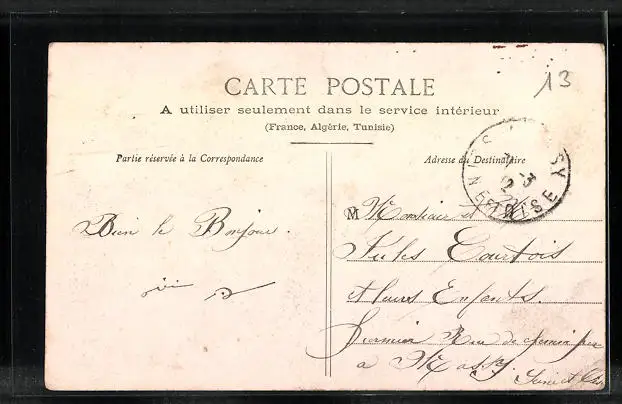 13
CARTE POSTALE
A utiliser seulement dans le service intérieur
(France, Algérie, Tunisie)
Partie réservée à la Correspondance
Adresse du Destinataire
SEINE ET OISE
Bien le Bonjour.
M Monsieur et
Jules Courtois
et leurs Enfants.
Rue de
a Massy
Seine et Oise